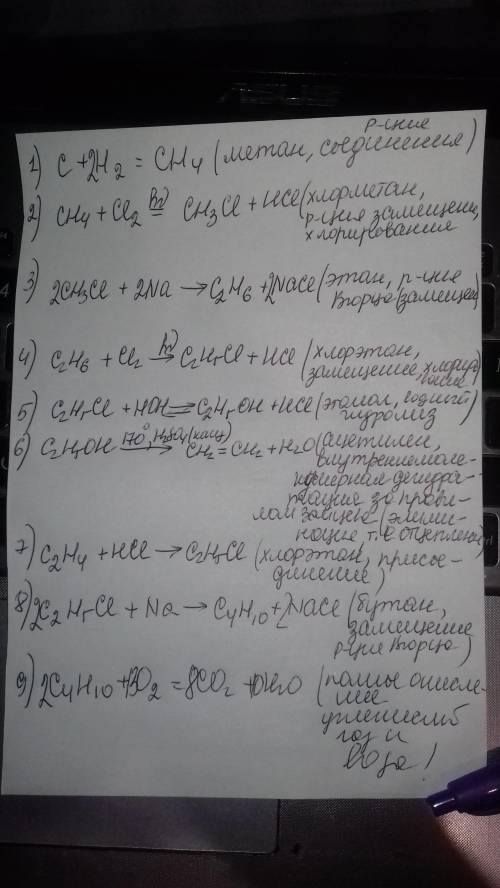 р-ция
1) C + 2H2 = CH4 (метан, соединения)
2) CH4 + Cl2 hν= CH3Cl + HCl (хлорметан,
р-ция замещения,
хлорирования
3) 2CH3Cl + 2Na → C2H6 + 2NaCl (этан, р-ция
Вюрца/замещен)
4) C2H6 + Cl2 hν→ C2H5Cl + HCl (хлорэтан,
замещение, хлориро
вание
5) C2H5Cl + HOH ⇌ C2H5OH + HCl (этанол,
гидролиз
6) C2H5OH 170°, H2SO4 (конц)→ CH2=CH2 + H2O (ацетилен,
внутримоле-
кулярная дегидра-
тация по прави-
лам зайцева (элими-
нация т.е отщепление)
7) C2H4 + HCl → C2H5Cl (хлорэтан, присое-
динение)
8) 2C2H5Cl + Na → C4H10 + 2NaCl (бутан,
замещение
р-ция Вюрца)
9) 2C4H10 + 13O2 = 8CO2 + 10H2O (полное окисле-
ние
углекислый
газ и
вода!